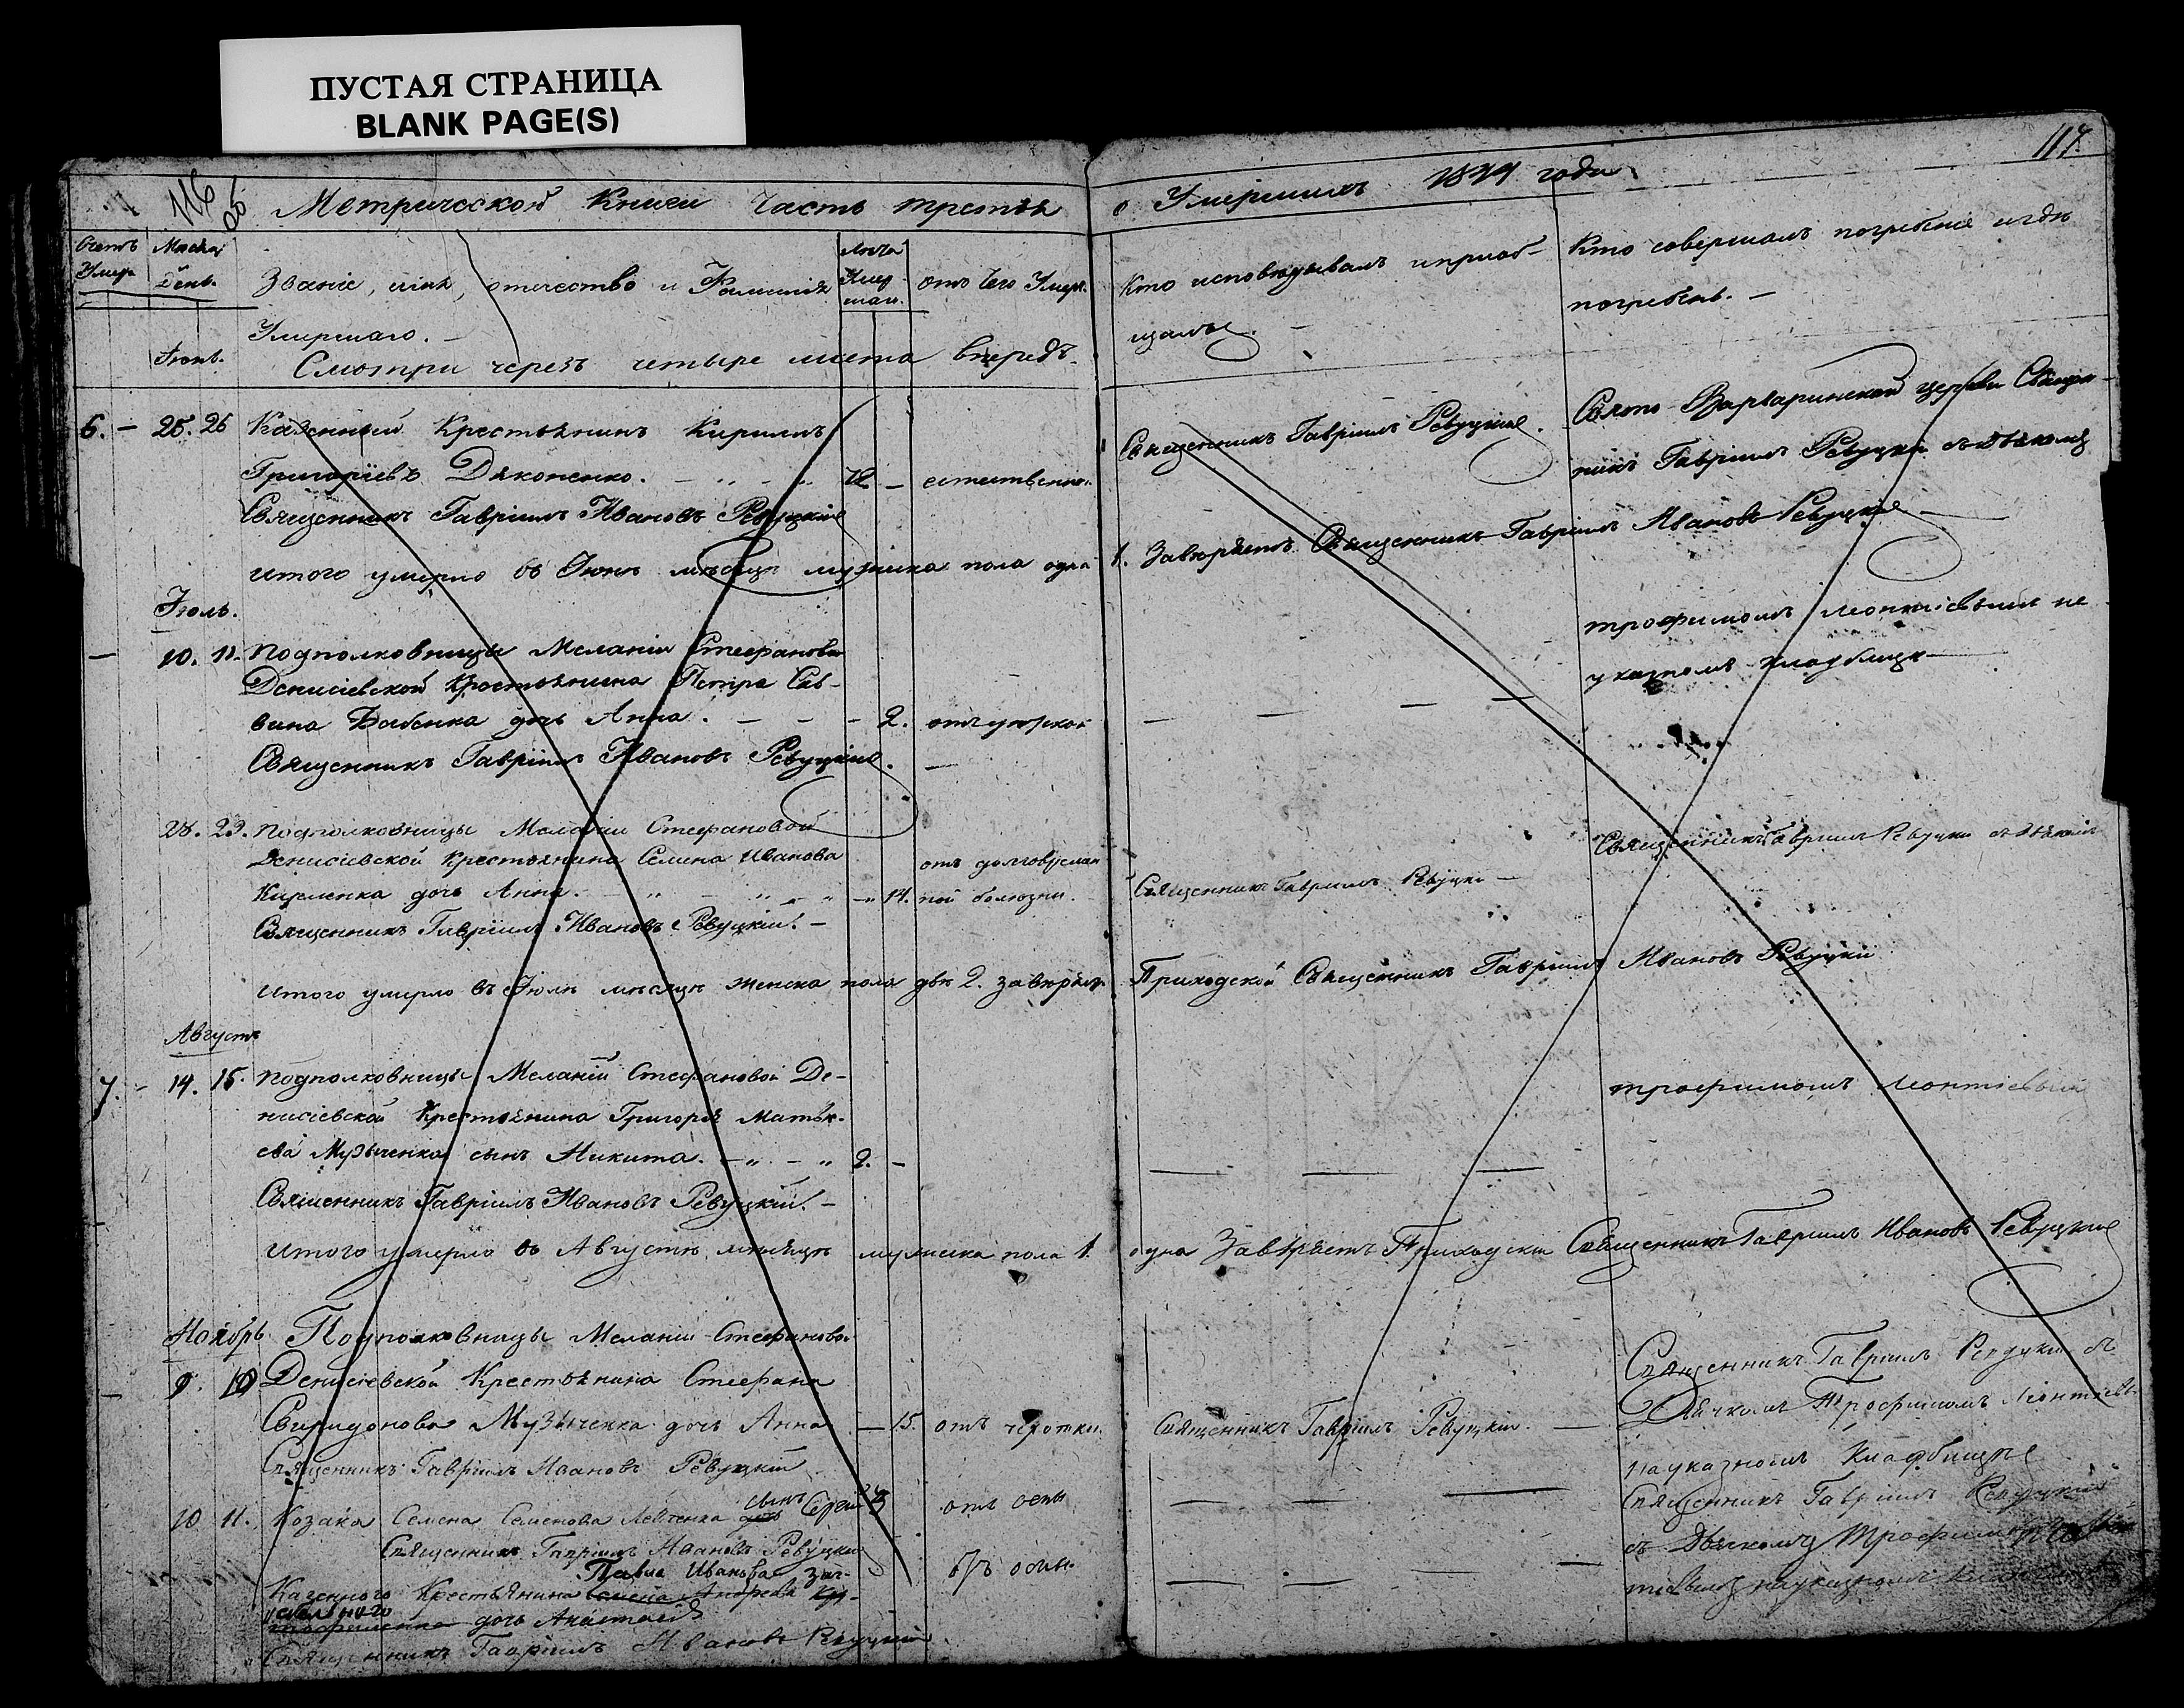 ПУСТАЯ СТРАНИЦА
BLANK PAGE(S)
116
об
Метрической Книги Часть третья
Счетъ Умер.
Месяц День.
Июнь.
Званіе, имя, отечество и Фамилія
Умершаго.
Лета Умер шаи.
отъ чего Умер.
Смотри черезъ четыре листа впередъ
6. - 25. 26 Казенный Крестьянинъ Кириллъ
Григоріевъ Дяконенко. естественно.
Священникъ Гавріилъ Ивановъ Ревуцкій
итого умерло въ Июнѣ мѣсяцѣ мужеска пола одна
Іюль.
10. 11. Подполковницы Меланіи Стефановой
Денисіевской Крестьянина Петра Сав-
вина Бабенка дочь Анна. - 2.
Священникъ Гавріилъ Ивановъ Ревуцкій.
28. 29. Подполковницы Меланіи Стефановой
Денисіевской Крестьянина Семена Иванова
Кириленка дочь Анна. 14. ной болюзни.
Священникъ Гавріилъ Ивановъ Ревуцкій. -
Итого умерло въ Іюлѣ мѣсяцѣ женска пола двѣ 2.
Августъ
7. - 14. 15. Подполковницы Меланіи Стефановой Де-
нисіевской Крестьянина Григорія Матѣ-
ева Музыченка сынъ Никита. 2. -
Священникъ Гавріилъ Ивановъ Ревуцкій. -
Итого умерло въ Августѣ мѣсяцѣ мужеска пола 1.
Ноябрь Подполковницы Меланіи Стефановой
9. 10 Денисіевской Крестьянина Стефана
Свиридонова Музыченка дочь Анна - 15. отъ чехотки.
Священникъ Гавріилъ Ивановъ Ревуцкій
10 11. Козака Семена Семенова Левченка дочь сынъ Сергій 3 отъ оспы
Священникъ Гавріилъ Ивановъ Ревуцкій
Казенного Крестьянина Павла Иванова
дочь Анастасія
Священникъ Гавріилъ Ивановъ Ревуцкій
117.
о Умершихъ 1829 года
Кто исповѣдывалъ и приоб-
щалъ.
Кто совершалъ погребеніе и гдѣ
погребенъ. -
Священникъ Гавріилъ Ревуцкій.
Свято Варваринской церкви Священ-
никъ Гавріилъ Ревуцкій съ дьякомъ
1. Завѣряетъ Священникъ Гавріилъ Ивановъ Ревуцкій
трофимомъ Леонтіевымъ на
указномъ кладбищѣ
Священникъ Гавріилъ Ревуцкій съ дьякомъ
Священникъ Гавріилъ Ревуцкій -
Приходской Священникъ Гавріилъ Ивановъ Ревуцкій
трофимомъ Леонтіевымъ
одна Завѣряетъ Приходскій Священникъ Гавріилъ Ивановъ Ревуцкій
Священникъ Гавріилъ Ревуцкій съ
Дьячкомъ Трофимомъ Леонтіевы-
Священникъ Гавріилъ Ревуцкій.
на указномъ кладбищѣ
Священникъ Гавріилъ Ревуцкій
съ Дьячкомъ Трофимомъ
тіевымъ на указномъ